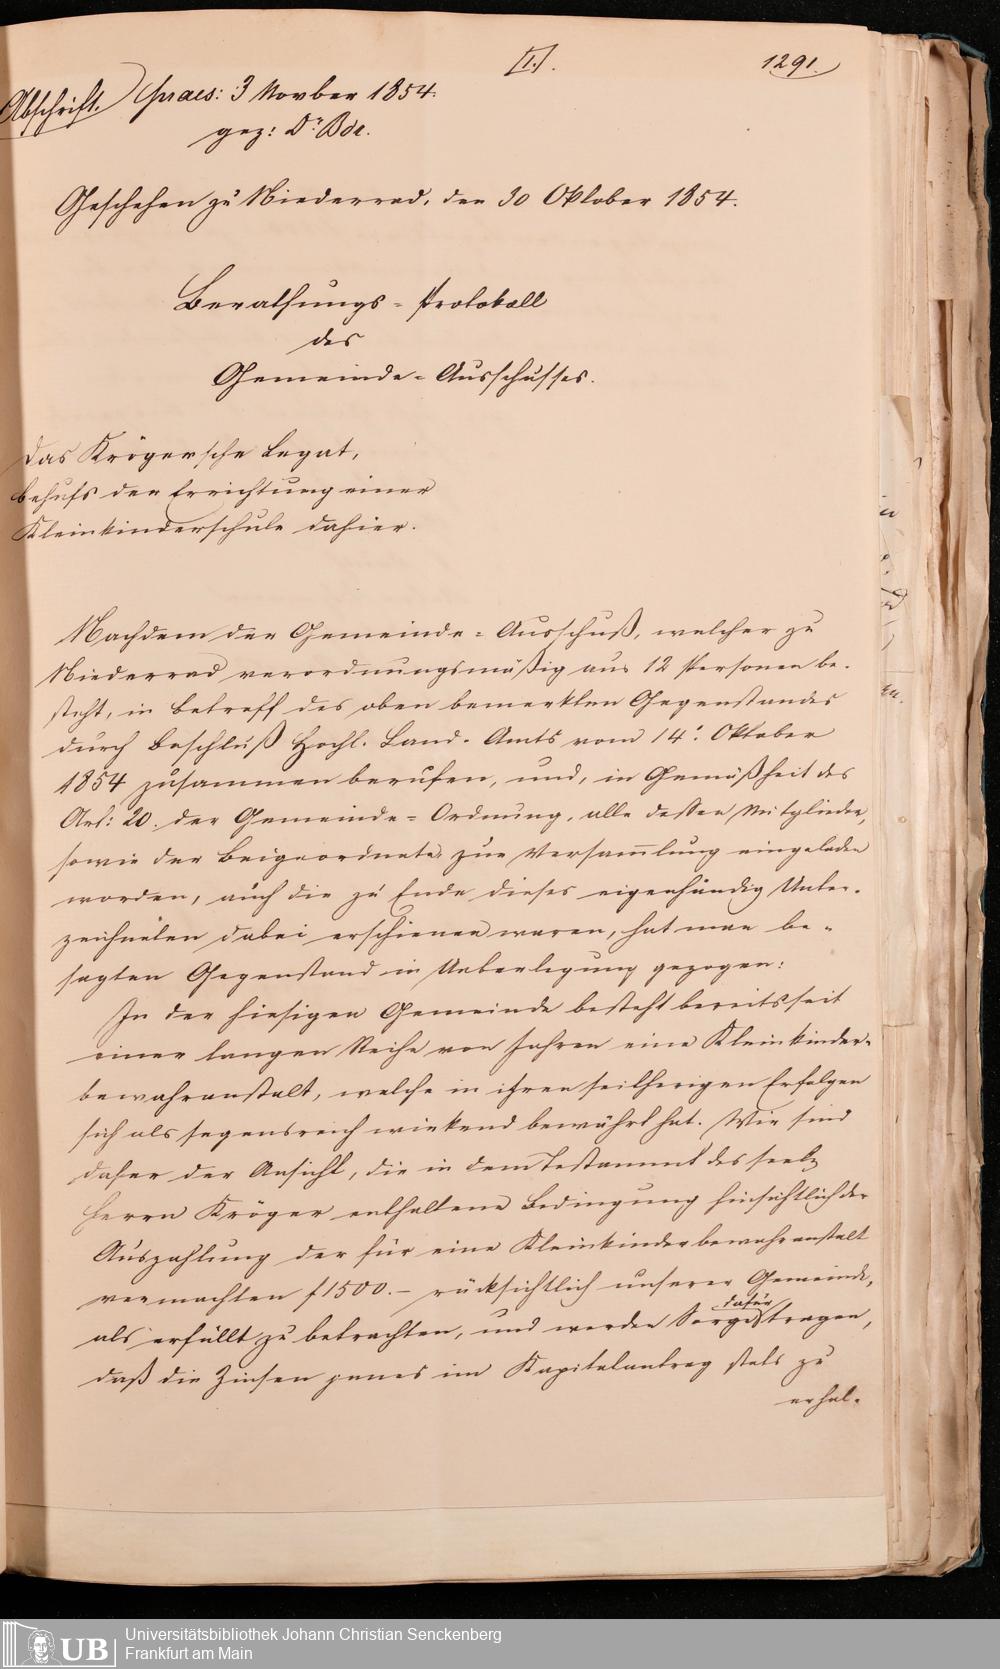 [1.].
1291.
Abschrift. Praes: 3 Novber 1854.
gez: Dr. Bdr.
Geschehen zu Niederrad, den 30 Oktober 1854.
Berathungs-Protokoll
des
Gemeinde-Ausschusses.
Das Krögersche Legat,
behufs der Errichtung einer
Kleinkinderschule dahier.
Nachdem der Gemeinde-Ausschuß, welcher zu
Niederrad verordnungsmäßig aus 12 Personen be-
steht, in Betreff des oben bemerkten Gegenstandes
durch Beschluß Hochl. Land-Amts vom 14. Oktober
1854 zusammen berufen, und, in Gemäßheit des
Art: 20. der Gemeinde-Ordnung, alle dessen Mitglieder,
sowie der Beigeordnete zur Versammlung eingeladen
worden, auch die zu Ende dieses eigenhändig Unter-
zeichneten dabei erschienen waren, hat man be-
sagten Gegenstand in Ueberlegung gezogen:
In der hiesigen Gemeinde besteht bereits seit
einer langen Reihe von Jahren eine Kleinkinder-
bewahranstalt, welche in ihren seitherigen Erfolgen
sich als segensreich wirkend bewährt hat. Wir sind
daher der Ansicht, die in dem Testament des seel.
Herrn Kröger enthaltene Bedingung hinsichtlich der
Auszahlung der für eine Kleinkinderbewahranstalt
vermachten f 1500.- rücksichtlich unserer Gemeinde,
als erfüllt zu betrachten, und werden Sorge dafür tragen,
daß die Zinsen jenes im Kapitalantrag stets zu
erhal-
UB
Universitätsbibliothek Johann Christian Senckenberg
Frankfurt am Main